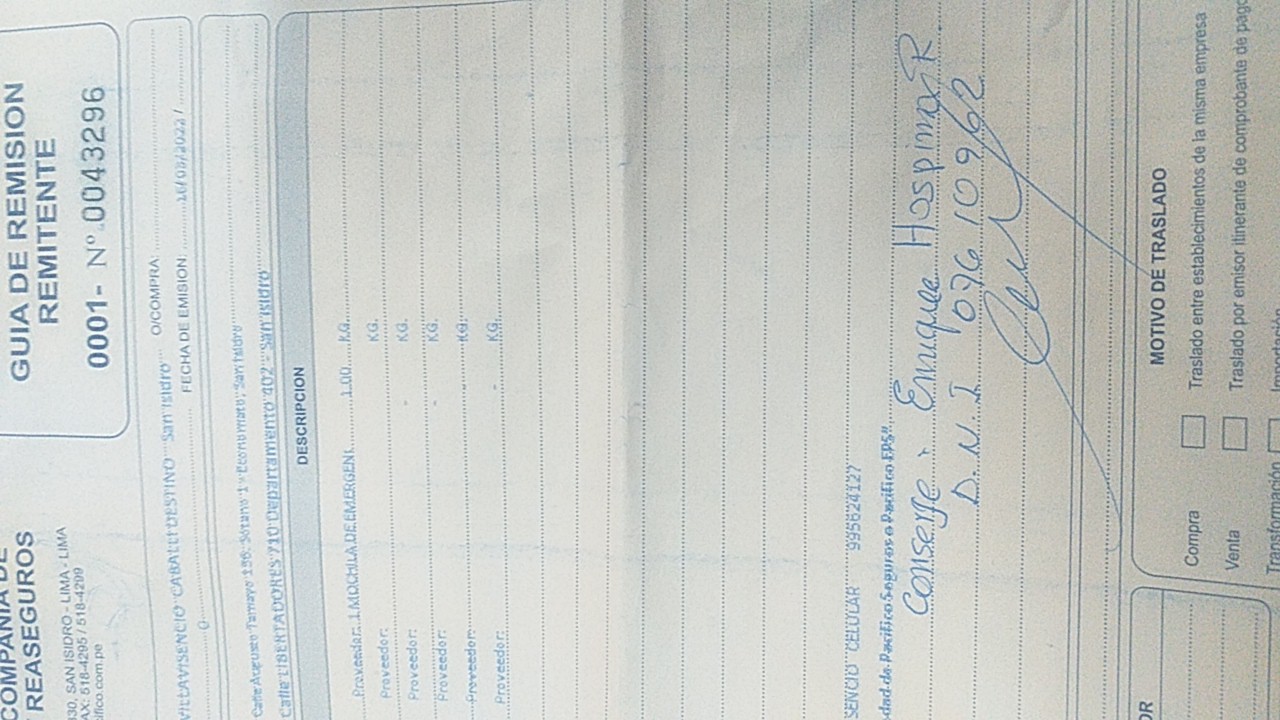 COMPAÑIA DE
Y REASEGUROS
SAN ISIDRO - LIMA - LIMA
FAX: 518-4295 / 518-4299
GUIA DE REMISION
REMITENTE
0001- Nº 0043296
VILLAVISENCIO CABALL DESTINO San Isidro
O/COMPRA:
0
FECHA DE EMISION 16/08/2022 /
Calle Augusto Tamayo 196, Sótano 1 - Economato, San Isidro
Calle LIBERTADORES 710 Departamento 402 - San Isidro
DESCRIPCION
Proveedor: 1 MOCHILA DE EMERGENC 1.00 KG.
Proveedor: KG.
Proveedor: - KG.
Proveedor: - KG.
Proveedor: - KG.
Proveedor: - KG.
SENCIO CELULAR 995624127
dad de Pacífico Seguros o Pacífico EPS"
Conserje. Enrique Hospinal R.
D.N.I 076 109 62
MOTIVO DE TRASLADO
Compra
Traslado entre establecimientos de la misma empresa
Venta
Traslado por emisor itinerante de comprobante de pago
Transformación